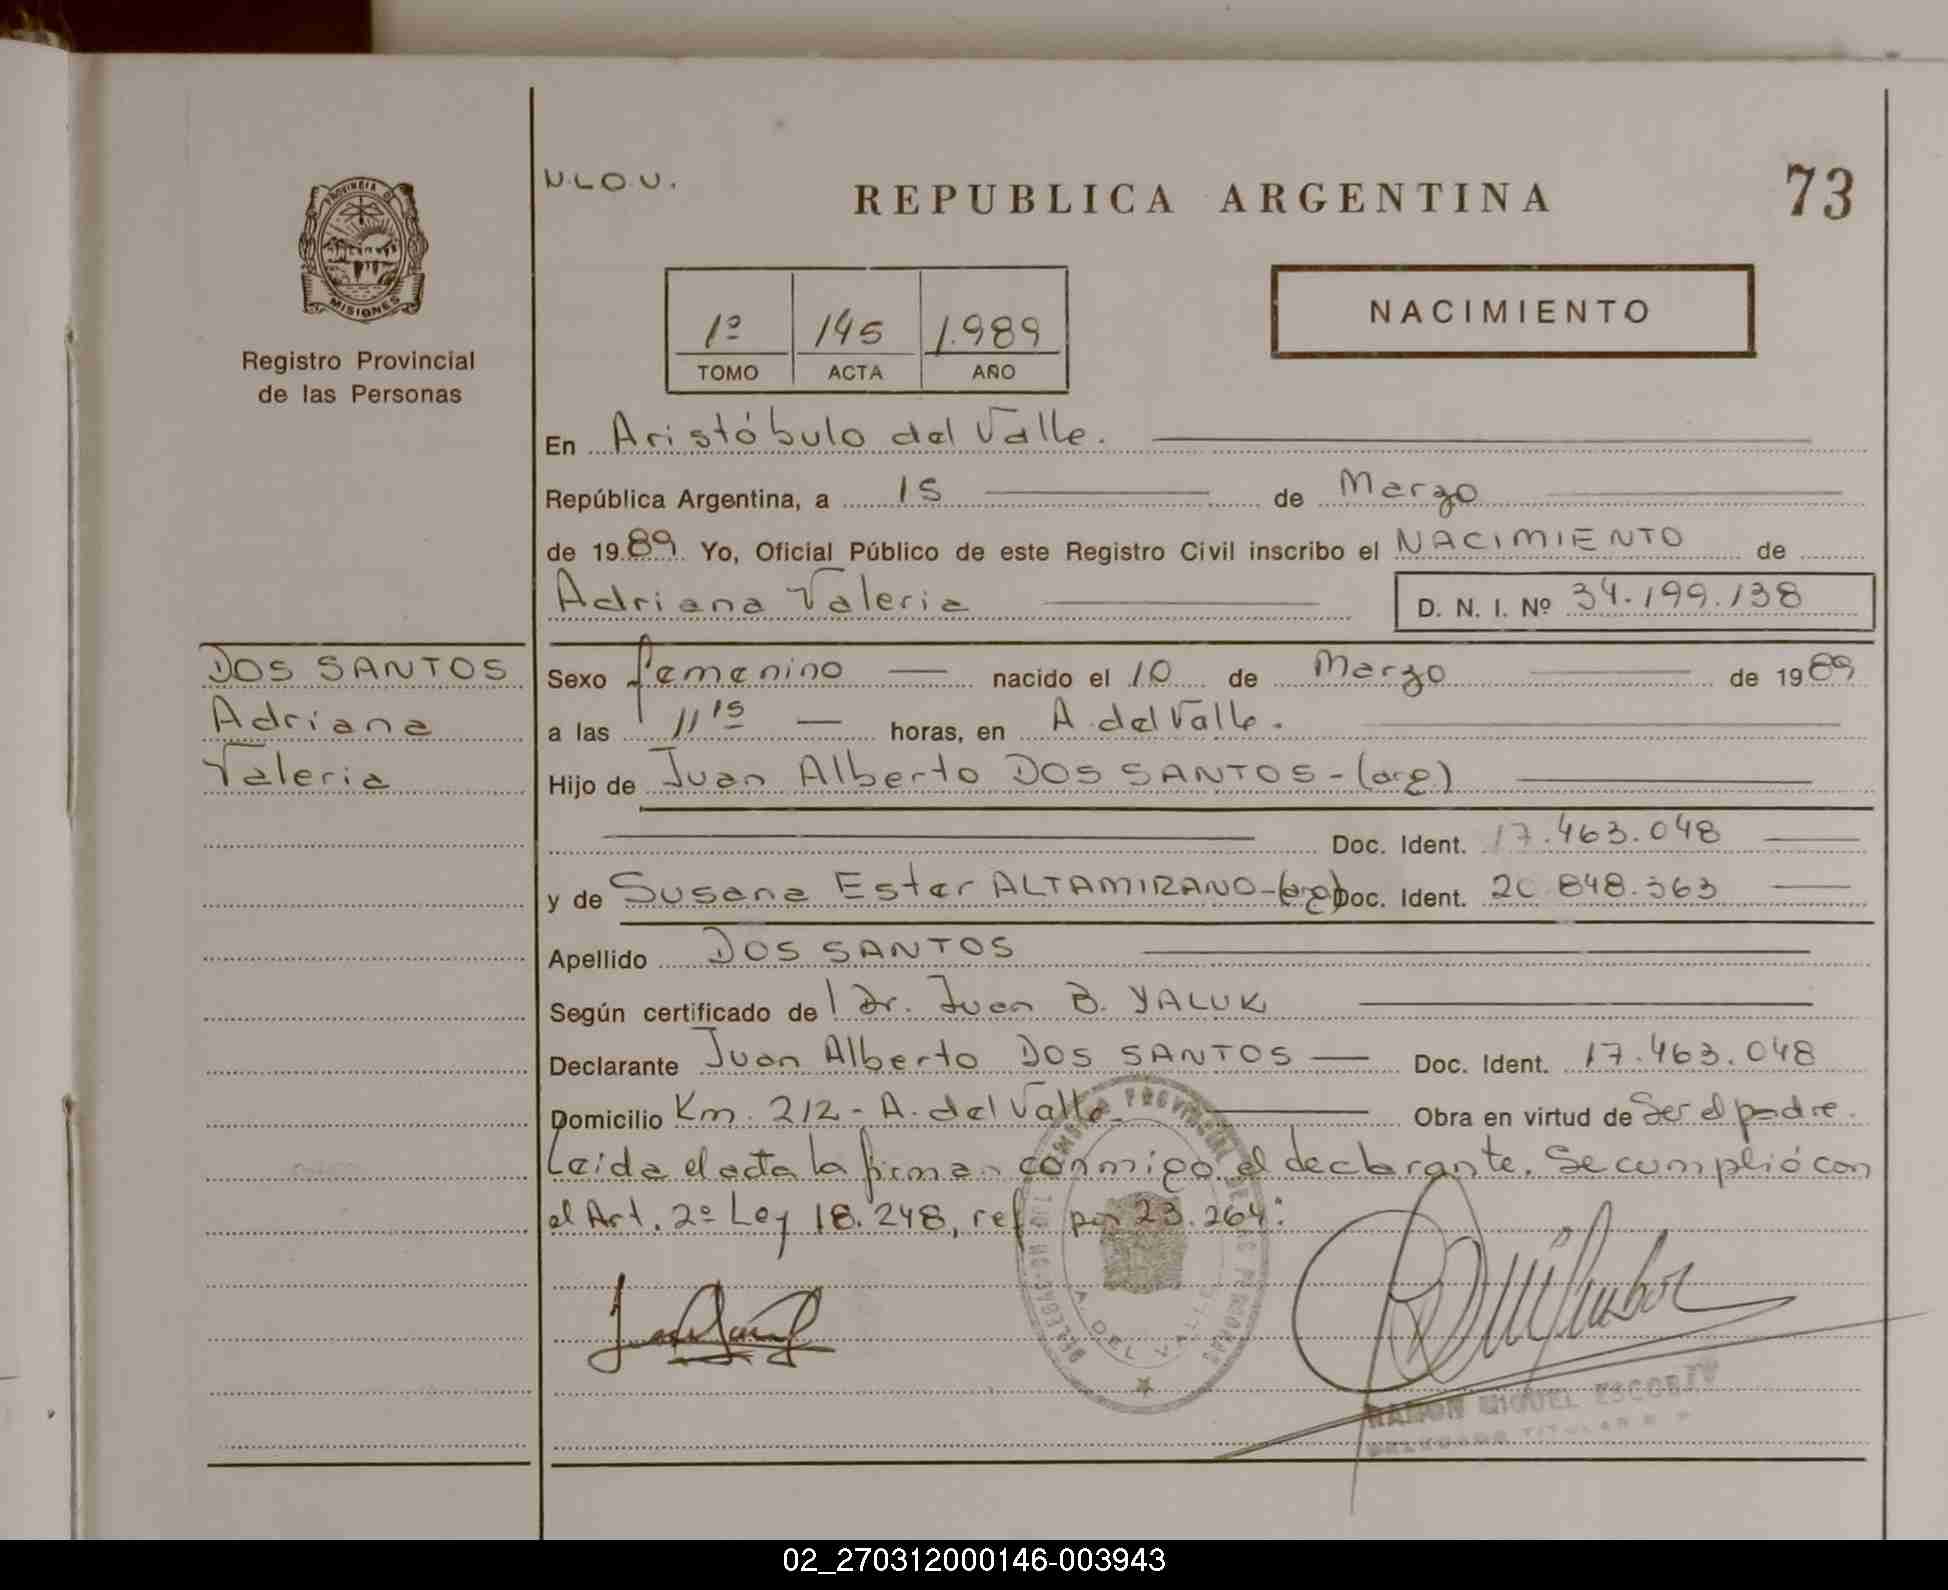 PROVINCIA DE
MISIONES
Registro Provincial
de las Personas
N.L.O.V.
REPUBLICA ARGENTINA
73
1º 145 1.989
TOMO ACTA AÑO
NACIMIENTO
En Aristóbulo del Valle.
República Argentina, a 15 de Marzo
de 1989 Yo, Oficial Público de este Registro Civil inscribo el NACIMIENTO de
Adriana Valeria D. N. I. Nº 34.199.138
DOS SANTOS
Adriana
Valeria
Sexo femenino nacido el 10 de Marzo de 1989
a las 11 15 horas, en A. del Valle.
Hijo de Juan Alberto DOS SANTOS - (arg)
Doc. Ident. 17.463.048
y de Susana Ester ALTAMIRANO - (arg) Doc. Ident. 20.848.363
Apellido DOS SANTOS
Según certificado del Dr. Juan B. YALUK
Declarante Juan Alberto DOS SANTOS Doc. Ident. 17.463.048
Domicilio Km. 212 - A. del Valle Obra en virtud de Ser el padre.
Leida el acta la firman conmigo el declarante. Se cumplió con
el Art. 2º Ley 18.248, ref por 23.264:
RAMON MIGUEL
TITULAR
02_270312000146-003943